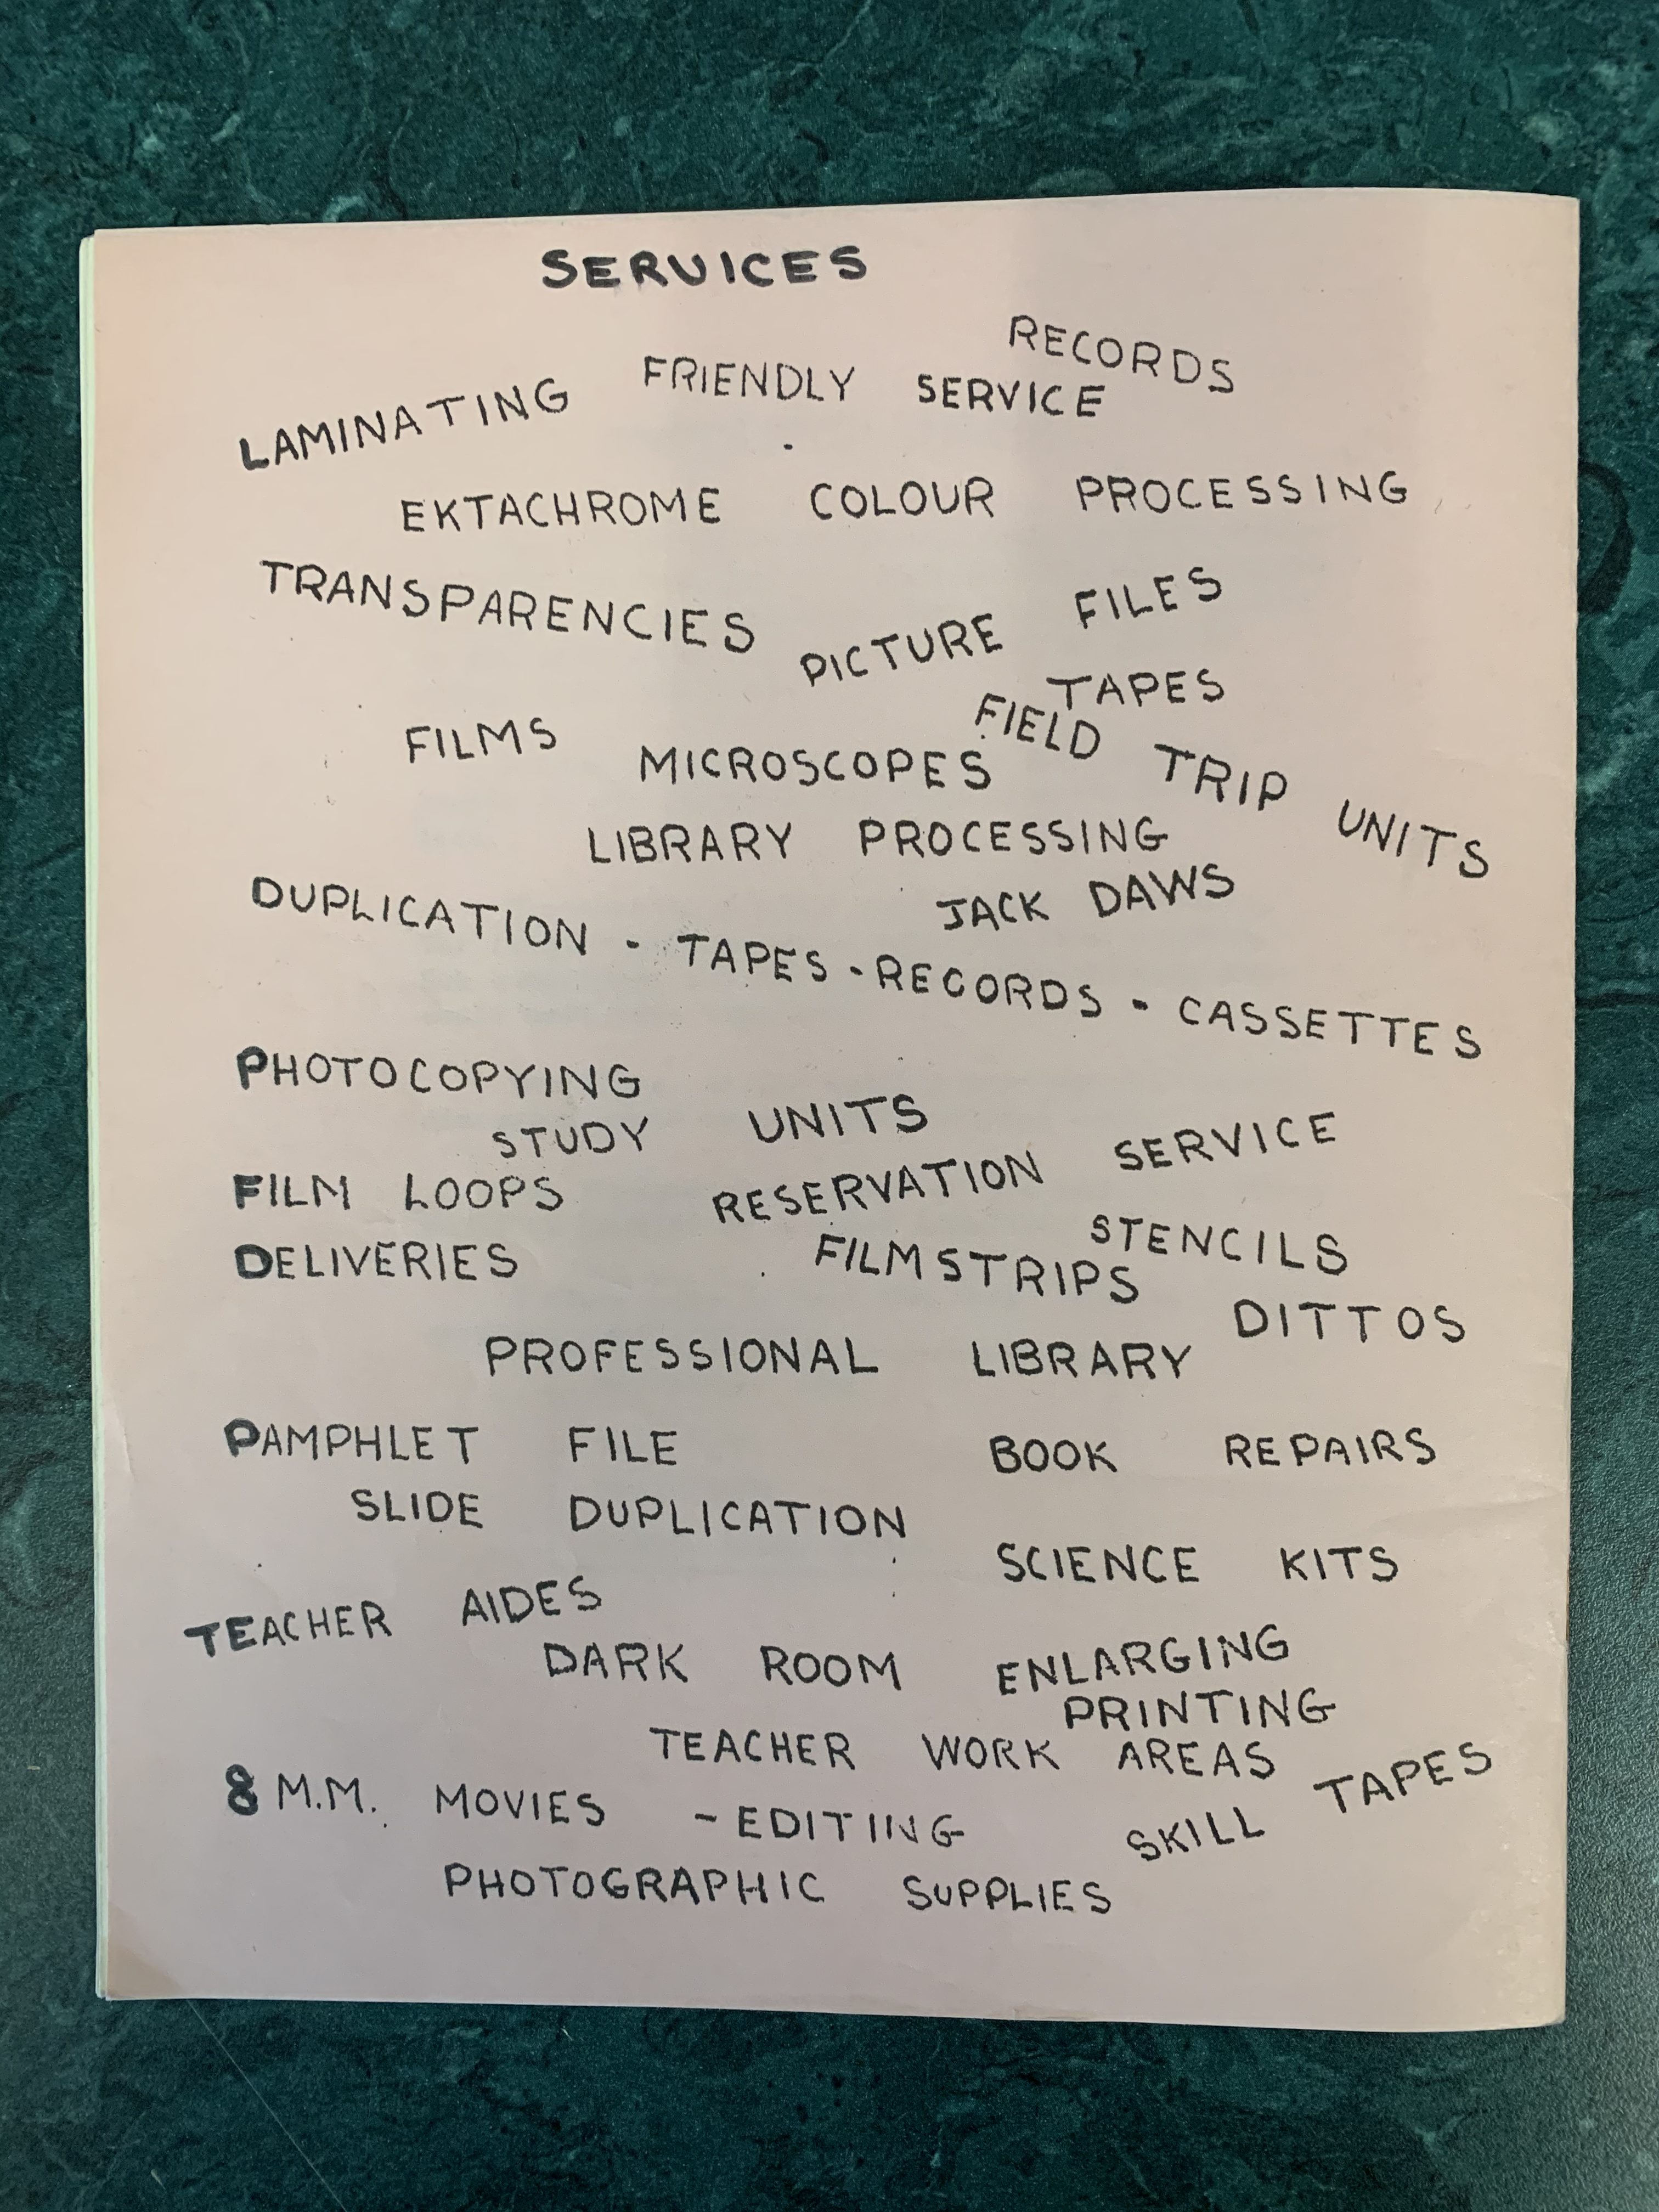 SERVICES
RECORDS
LAMINATING FRIENDLY SERVICE
EKTACHROME COLOUR PROCESSING
TRANSPARENCIES
PICTURE FILES
TAPES
FILMS
MICROSCOPES
FIELD TRIP UNITS
LIBRARY PROCESSING
JACK DAWS
DUPLICATION - TAPES - RECORDS - CASSETTES
PHOTOCOPYING
STUDY UNITS
FILM LOOPS
RESERVATION SERVICE
STENCILS
DELIVERIES
FILMSTRIPS
DITTOS
PROFESSIONAL LIBRARY
PAMPHLET FILE
BOOK REPAIRS
SLIDE DUPLICATION
SCIENCE KITS
TEACHER AIDES
DARK ROOM ENLARGING
PRINTING
TEACHER WORK AREAS
8 M.M. MOVIES - EDITING
SKILL TAPES
PHOTOGRAPHIC SUPPLIES